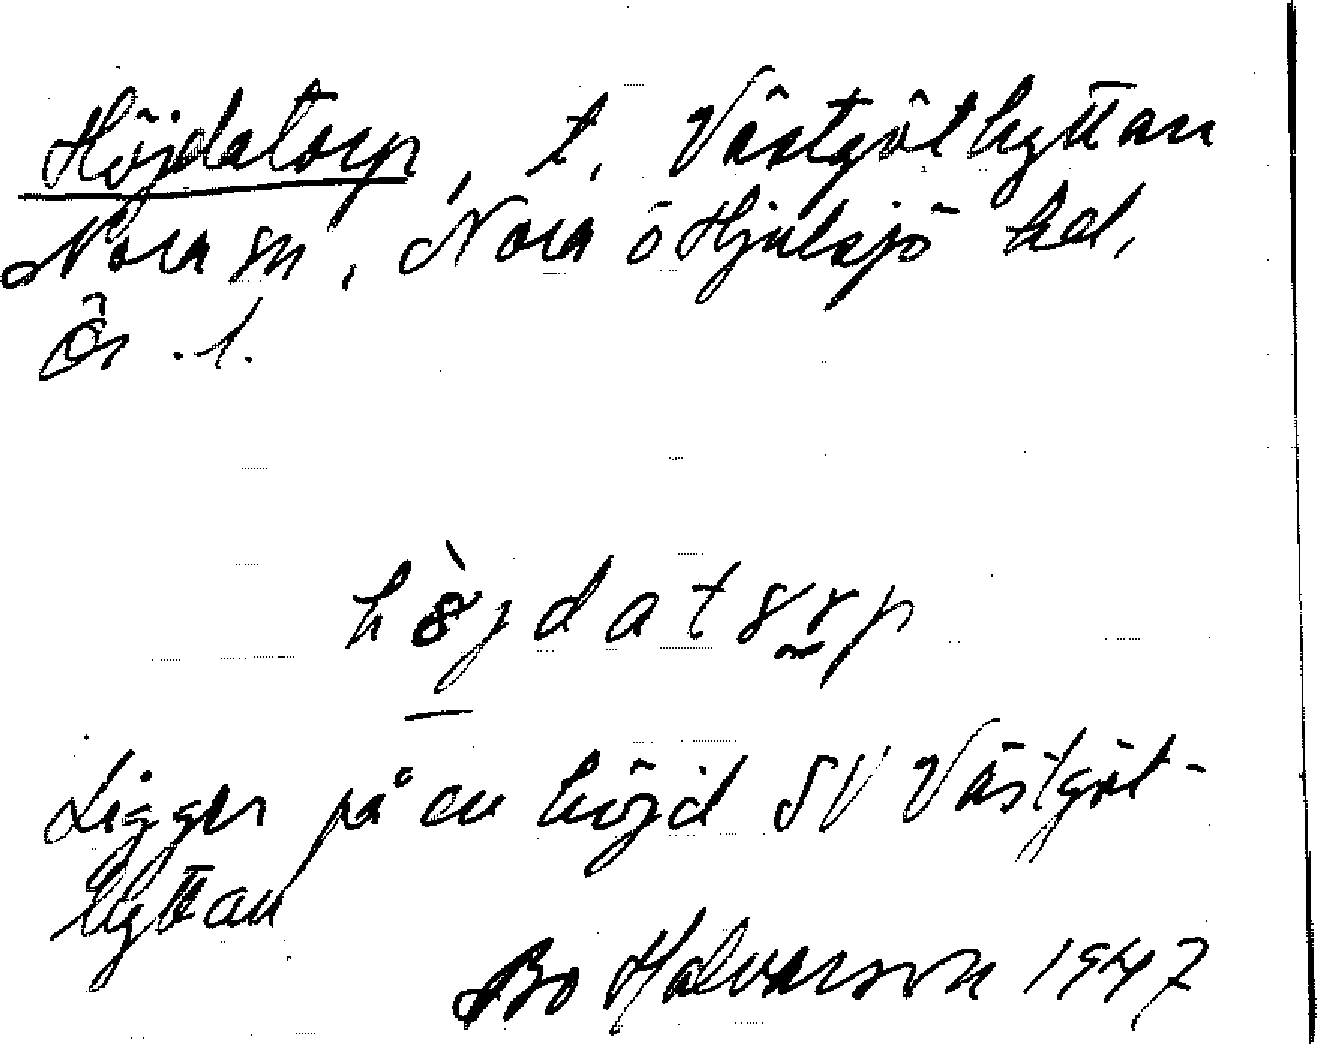 Höjdatorp, t. Västgöthyttan
Nora sn, Nora o Hjulsjö hd,
Ör. l.
hö̀jdatɤrp
Ligger på en höjd SV Västgöt-
hyttan
Bo Halvarson 1947